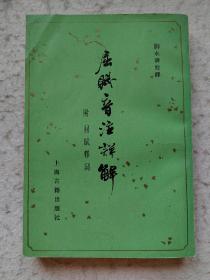 劉永濟校釋
屈賦音注詳解
附 屈賦釋詞
上海古籍出版社